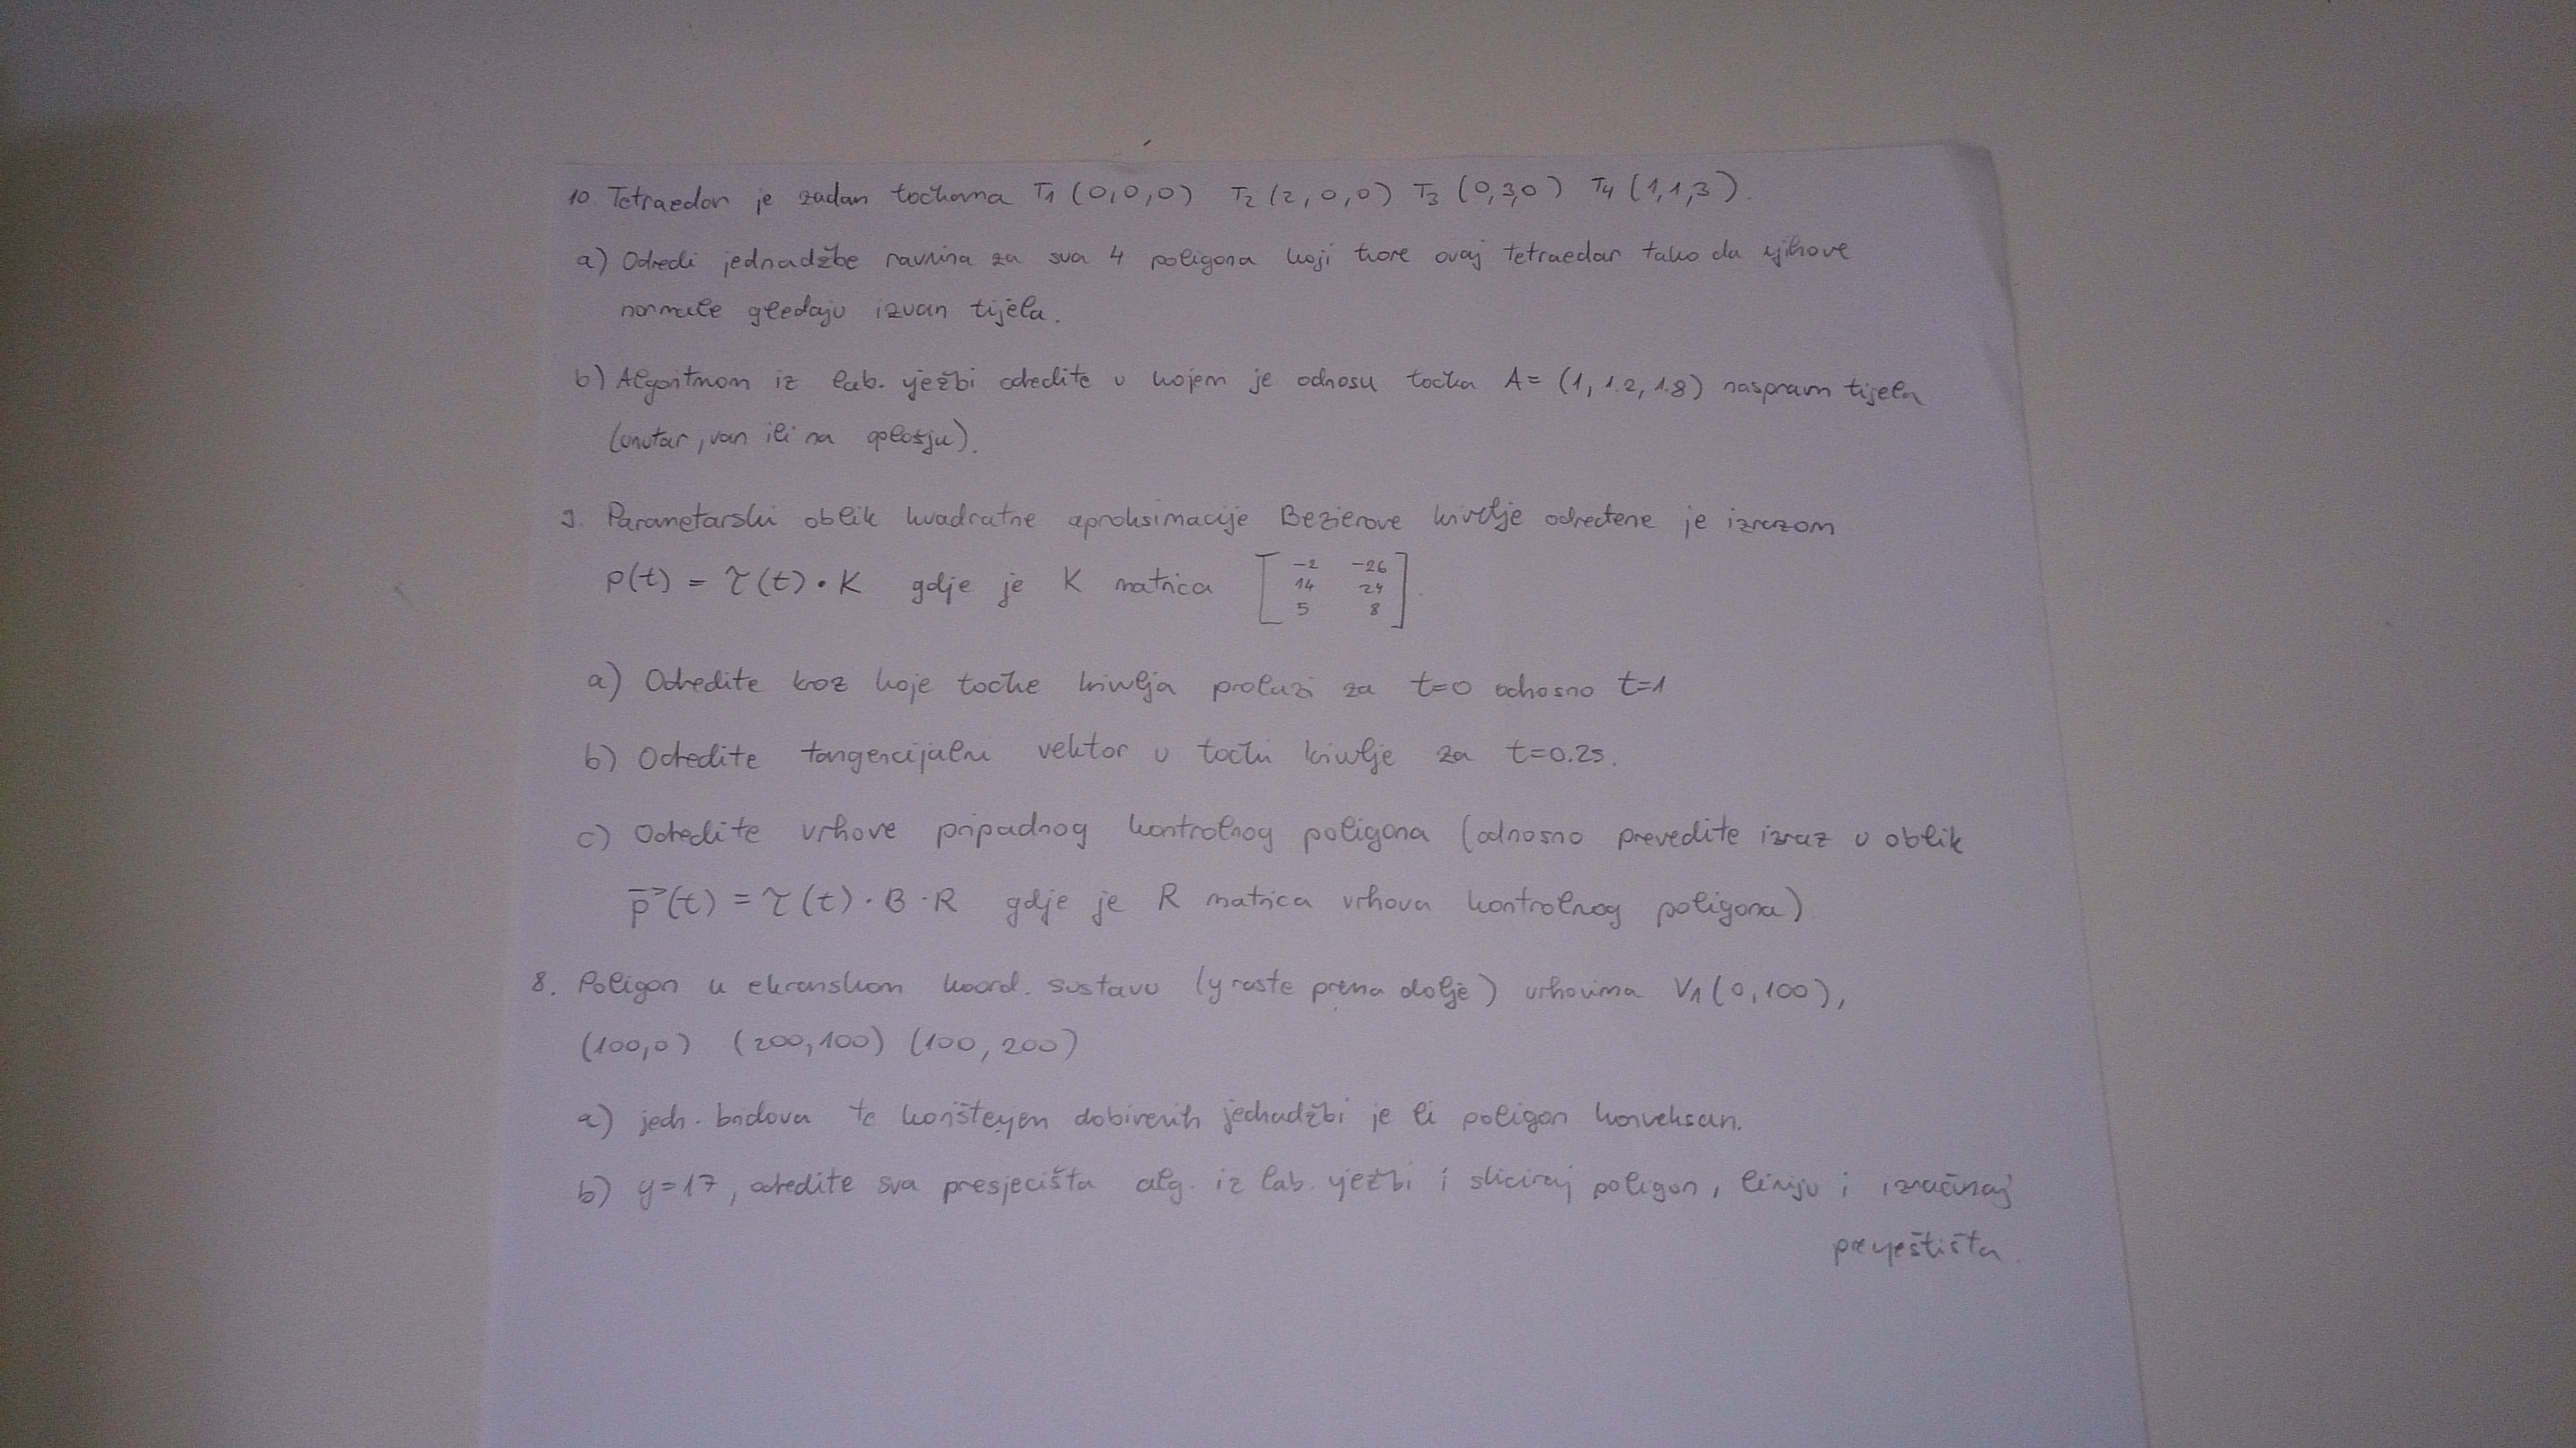 10. Tetraedar je zadan točkama T1 (0,0,0) T2 (2,0,0) T3 (0,3,0) T4 (1,1,3).
a) Odredi jednadžbe ravnina za sva 4 poligona koji tvore ovaj tetraedar tako da njihove
normale gledaju izvan tijela.
b) Algoritmom iz lab. vježbi odredite u kojem je odnosu točka A= (1, 1.2, 1.8) naspram tijela
(unutar, van ili na oplošju).
9. Parametarski oblik kvadratne aproksimacije Bezierove krivulje određene je izrazom
p(t) = τ(t) • K gdje je K matrica [ -2 -26
14 24
5 8 ].
a) Odredite kroz koje točke krivulja prolazi za t=0 odnosno t=1
b) Odredite tangencijalni vektor u točki krivulje za t=0.25.
c) Odredite vrhove pripadnog kontrolnog poligona (odnosno prevedite izraz u oblik
p(t) = τ(t) · B · R gdje je R matrica vrhova kontrolnog poligona)
8. Poligon u ekranskom koord. sustavu (y raste prema dolje) vrhovima V1 (0,100),
(100,0) (200,100) (100,200)
a) jedn. bridova te korištenjem dobivenih jednadžbi je li poligon konveksan.
b) y=17, odredite sva presjecišta alg. iz lab. vježbi i skiciraj poligon, liniju i izračunaj